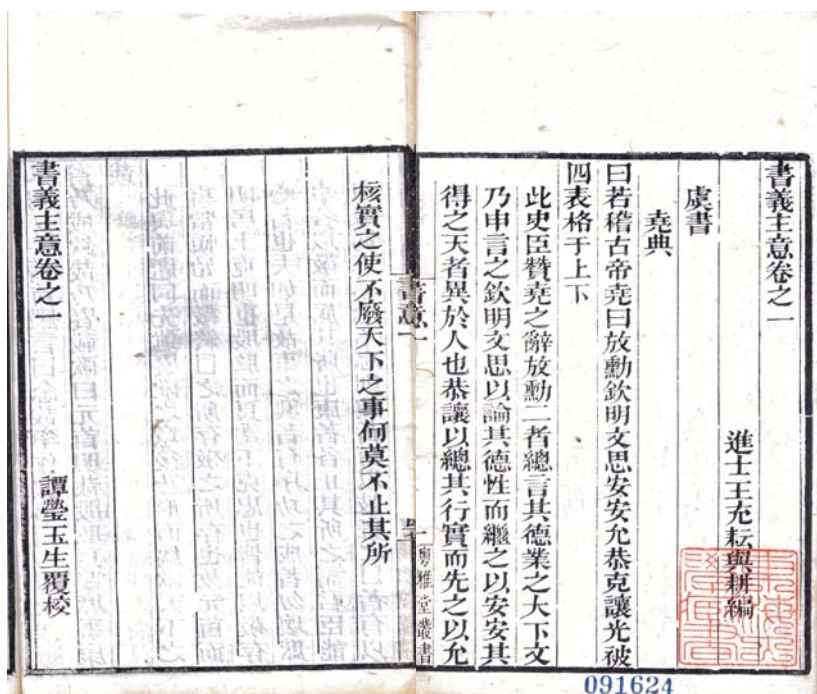 書義主意卷之一
進士王充耘與耕編
虞書
堯典
曰若稽古帝堯曰放勳欽明文思安安允恭克讓光被
四表格于上下
此史臣贊堯之辭放勳二者總言其德業之大下文
乃申言之欽明文思以論其德性而繼之以安安其
得之天者異於人也恭讓以總其行實而先之以允
書意一
一
粵雅堂叢書
核實之使不廢天下之事何莫不止其所
譚瑩玉生覆校
書義主意卷之一
091624